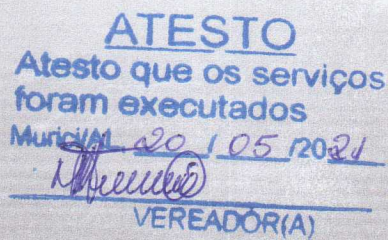 ATESTO
Atesto que os serviços
foram executados
Murici/AL 20 / 05 /2021
VEREADOR(A)